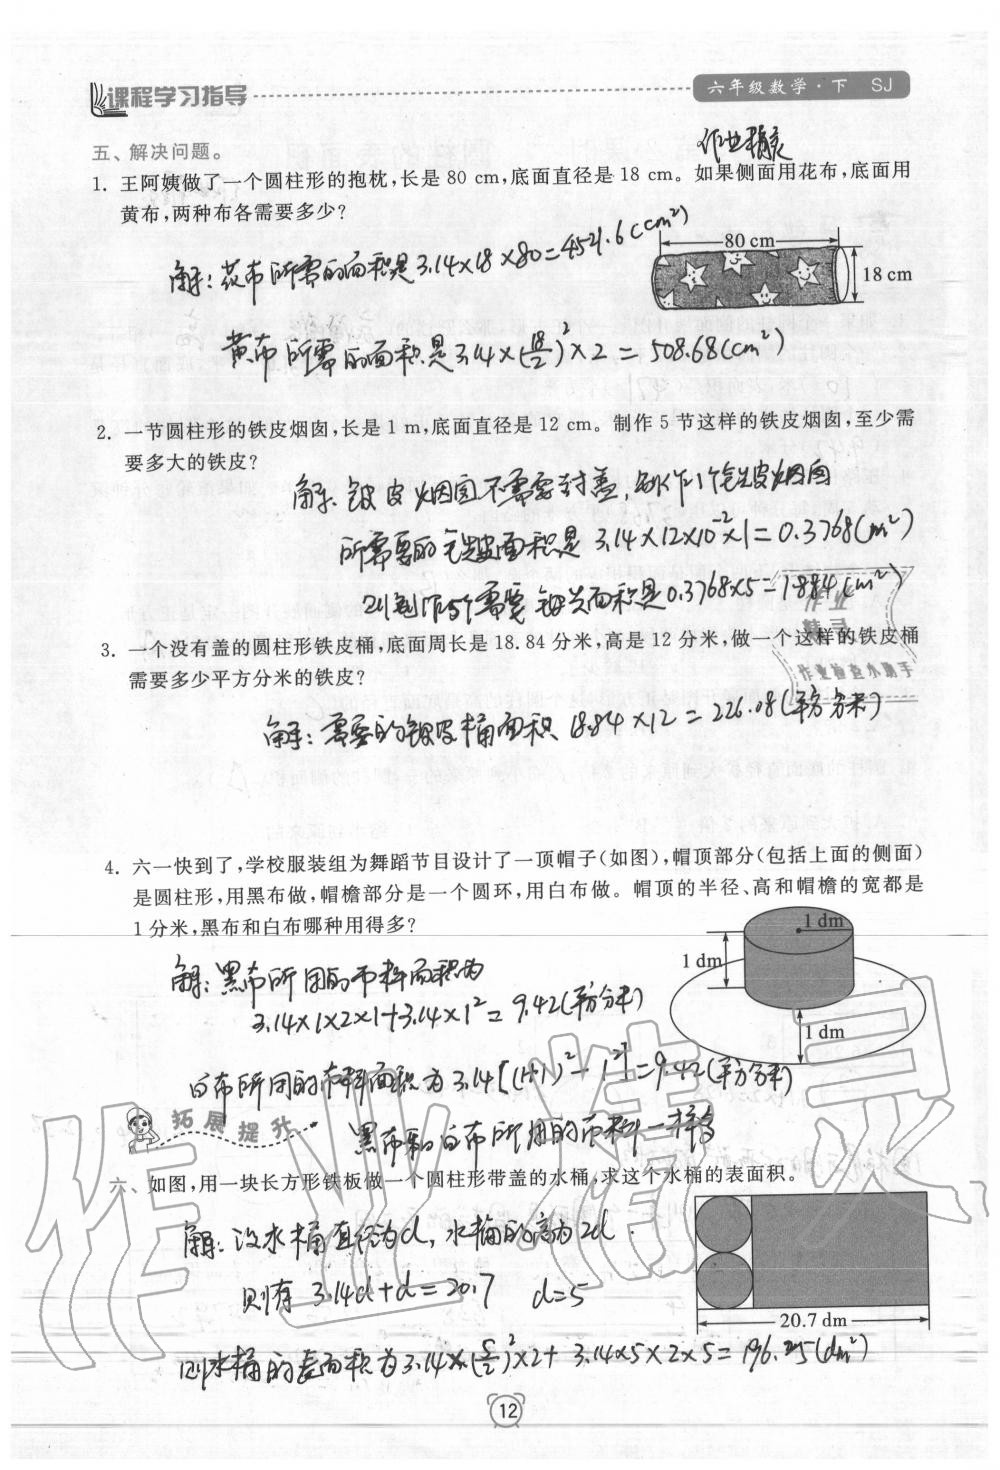 课程学习指导
六年级数学·下 SJ
作业精灵
五、解决问题。
1. 王阿姨做了一个圆柱形的抱枕,长是 80 cm,底面直径是 18 cm。如果侧面用花布,底面用
黄布,两种布各需要多少?
解:花布所需的面积是3.14×18×80=4521.6(cm²)
80 cm
18 cm
黄布所需的面积是3.14×(18/2)²×2=508.68(cm²)
2. 一节圆柱形的铁皮烟囱,长是 1 m,底面直径是 12 cm。制作 5 节这样的铁皮烟囱,至少需
要多大的铁皮?
解:铁皮烟囱不需要封盖,制作1个铁皮烟囱
所需要的铁皮面积是 3.14×12×10⁻²×1=0.3768(m²)
则制作5个需要 面积是0.3768×5=1.884(m²)
3. 一个没有盖的圆柱形铁皮桶,底面周长是 18.84 分米,高是 12 分米,做一个这样的铁皮桶
需要多少平方分米的铁皮?
作业检查小助手
解:需要的铁皮桶面积 18.84×12=226.08(平方分米)
4. 六一快到了,学校服装组为舞蹈节目设计了一顶帽子(如图),帽顶部分(包括上面的侧面)
是圆柱形,用黑布做,帽檐部分是一个圆环,用白布做。帽顶的半径、高和帽檐的宽都是
1 分米,黑布和白布哪种用得多?
1 dm
1 dm
1 dm
解:黑布所用的布料面积为
3.14×1×2×1+3.14×1²=9.42(平方分米)
白布所用的布料面积为3.14[(1+1)²-1²]=9.42(平方分米)
黑布和白布所用的布料一样多
拓展提升
六、如图,用一块长方形铁板做一个圆柱形带盖的水桶,求这个水桶的表面积。
解:设水桶直径为d,水桶的高为2d
则有 3.14d+d=20.7 d=5
20.7 dm
则水桶的表面积为3.14×(5/2)²×2+3.14×5×2×5=196.25(dm²)
12
作业精灵